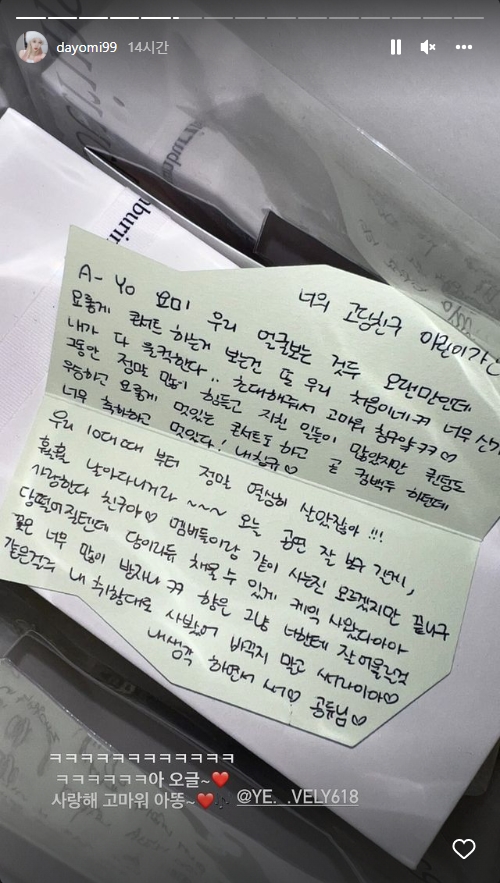 dayomi99 14시간
A- Yo 요미
너의 고딩친구 아린이가
우리 얼굴보는 것두 오랜만인데
요롷게 콘서트 하는거 보는건 또 우리 처음이네ㅋㅋ 너무 신기
내가 다 뭉클한다.. 초대해줘서 고마워 칭구야ㅋㅋ♡
그동안 정말 많이 힘들고 지친 일들이 많았지만 퀸덤도
우승하고 요롷게 멋있는 콘서트도 하고 곧 컴백두 하던데
너무 축하하고 멋있다! 내칭구♡
우리 10대때 부터 정말 열심히 살았잖아!!!
훨훨 날아다니거라~~~ 오늘 공연 잘 보구 간게,
사랑한다 친구야♡ 멤버들이랑 같이 사는진 모르겠지만 끝나구
당떨어질텐데 당이라듀 채울 수 있게 케익 사왔다아아
꽃은 너무 많이 받자나ㅋㅋ 향은 그냥 너한테 잘어울릴것
같은걸루 내 취향대로 사봤어 바꾸지 말고 써라이아♡
내생각 하면서 써♡ 공듀님♡
ㅋㅋㅋㅋㅋㅋㅋㅋㅋㅋㅋㅋ
ㅋㅋㅋㅋㅋㅋ아 오글~❤️
사랑해 고마워 아똥~❤️🎶 @YE._.VELY618